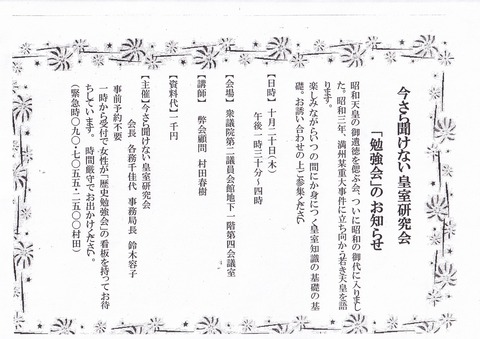 今さら聞けない皇室研究会
「勉強会」のお知らせ
昭和天皇の御遺徳を偲ぶ会、ついに昭和の御代に入りまし
た。昭和三年、満州某重大事件に立ち向かう若き天皇を語
ります。
楽しみながらいつの間にか身につく皇室知識の基礎の基
礎。お誘い合わせの上ご参集ください
【日時】 十月二十日(木)
午後一時三十分~四時
【会場】 衆議院第二議員会館地下一階第四会議室
【講師】 弊会顧問 村田春樹
【資料代】一千円
【主催】今さら聞けない皇室研究会
会長 各務千佳代 事務局長 鈴木容子
事前予約不要
一時から受付で女性が「歴史勉強会」の看板を持ってお待
ちしています。 時間厳守でお出かけください。
(緊急時〇九〇-七〇五五-二五〇〇村田)